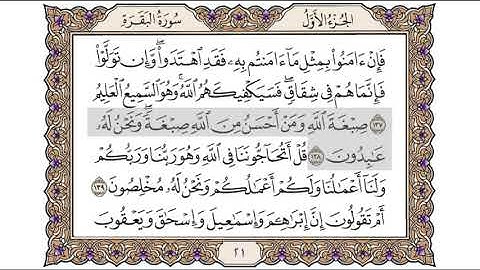 الجزء الأول
سورة البقرة
فَإِنْ ءَامَنُوا۟ بِمِثْلِ مَآ ءَامَنتُم بِهِۦ فَقَدِ ٱهْتَدَوا۟ ۖ وَّإِن تَوَلَّوْا۟
فَإِنَّمَا هُمْ فِى شِقَاقٍ ۖ فَسَيَكْفِيكَهُمُ ٱللَّهُ ۚ وَهُوَ ٱلسَّمِيعُ ٱلْعَلِيمُ
١٣٧ صِبْغَةَ ٱللَّهِ وَمَنْ أَحْسَنُ مِنَ ٱللَّهِ صِبْغَةً ۖ وَنَحْنُ لَهُۥ
عَـٰبِدُونَ ١٣٨ قُلْ أَتُحَآجُّونَنَا فِى ٱللَّهِ وَهُوَ رَبُّنَا وَرَبُّكُمْ
وَلَنَآ أَعْمَـٰلُنَا وَلَكُمْ أَعْمَـٰلُكُمْ وَنَحْنُ لَهُۥ مُخْلِصُونَ ١٣٩
أَمْ تَقُولُونَ إِنَّ إِبْرَٰهِـۧمَ وَإِسْمَـٰعِيلَ وَإِسْحَـٰقَ وَيَعْقُوبَ
٢١